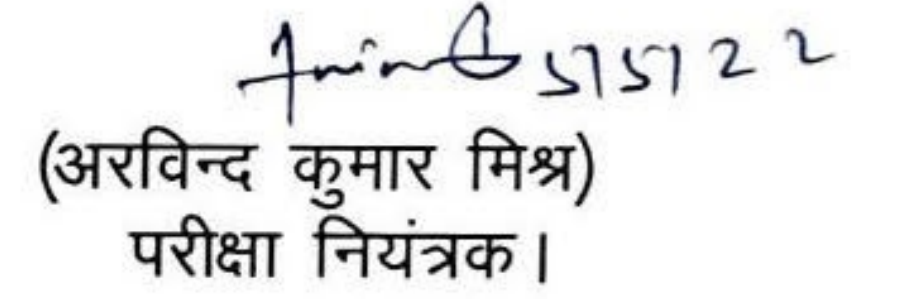 5/5/22
(अरविन्द कुमार मिश्र)
परीक्षा नियंत्रक।